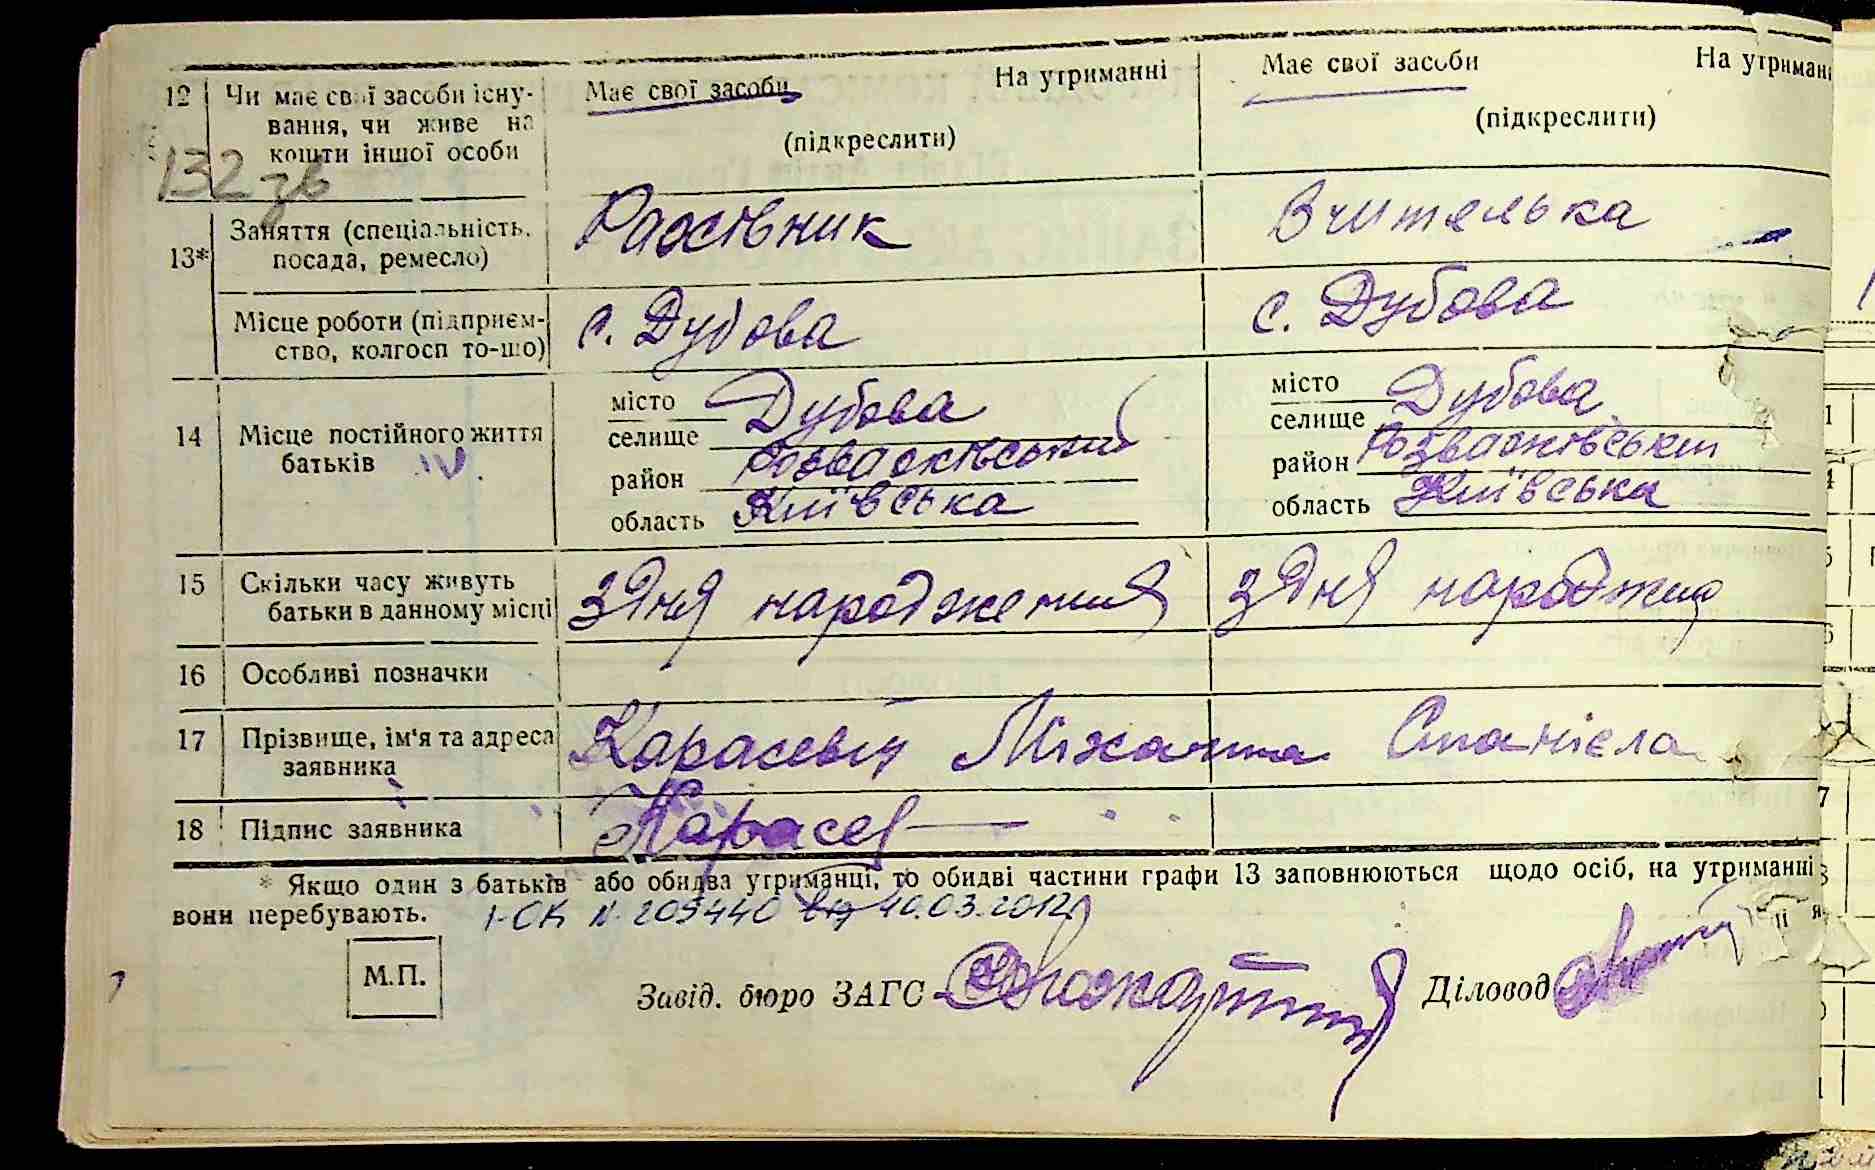 12 Чи має свої засоби існу- Має свої засоби На утриманні Має свої засоби На утриманні
вання, чи живе на (підкреслити) (підкреслити)
кошти іншої особи
132 зв
13* Заняття (спеціальність, посада, ремесло) Вчителька
Місце роботи (підприєм- с. Дубова с. Дубова
ство, колгосп то-що)
14 Місце постійного життя місто Дубова місто Дубова
батьків селище селище
район район
область Київська область Київська
15 Скільки часу живуть З дня народження З дня
батьки в данному місці
16 Особливі позначки
17 Прізвище, ім'я та адреса Карасевич Станієла
заявника
18 Підпис заявника Карасев
* Якщо один з батьків або обидва утриманці, то обидві частини графи 13 заповнюються щодо осіб, на утриманні
вони перебувають. 10.03.2012
М.П. Завід. бюро ЗАГС Діловод